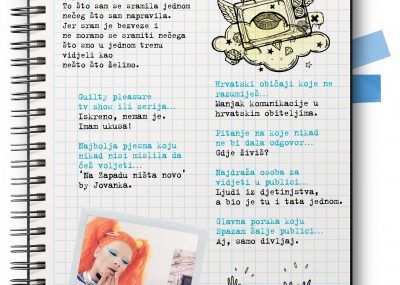 To što sam se sramila jednom
nečeg što sam napravila.
Jer sram je bezveze i
ne moramo se sramiti nečega
što smo u jednom tremu
vidjeli kao
nešto što želimo.
Guilty pleasure
tv show ili serija...
Iskreno, nemam je.
Imam ukusa!
Najbolja pjesma koju
nikad nisi mislila da
ćeš voljeti...
'Na Zapadu ništa novo'
by Jovanka.
Hrvatski običaji koje ne
razumiješ...
Manjak komunikacije u
hrvatskim obiteljima.
Pitanje na koje nikad
ne bi dala odgovor...
Gdje živiš?
Najdraža osoba za
vidjeti u publici...
Ljudi iz djetinjstva,
a bio je tu i tata jednom.
Glavna poruka koju
Spazam šalje publici...
Aj, samo divljaj.